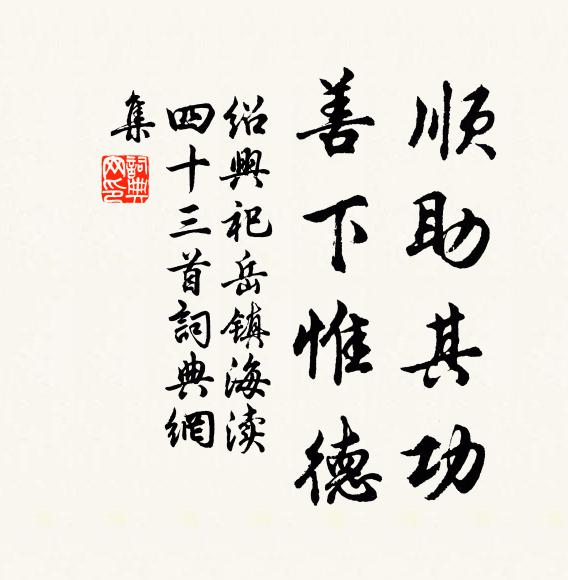 顺助其功
善下惟德
绍興祀岳镇海渎
四十三首詞典網
集
詞典网印